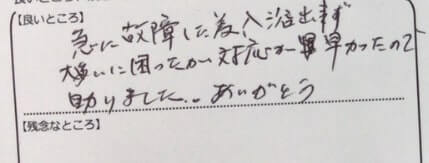 【良いところ】
急に故障した為入浴出来ず
大変に困ったが対応が早かったので
助りました.. ありがとう
【残念なところ】